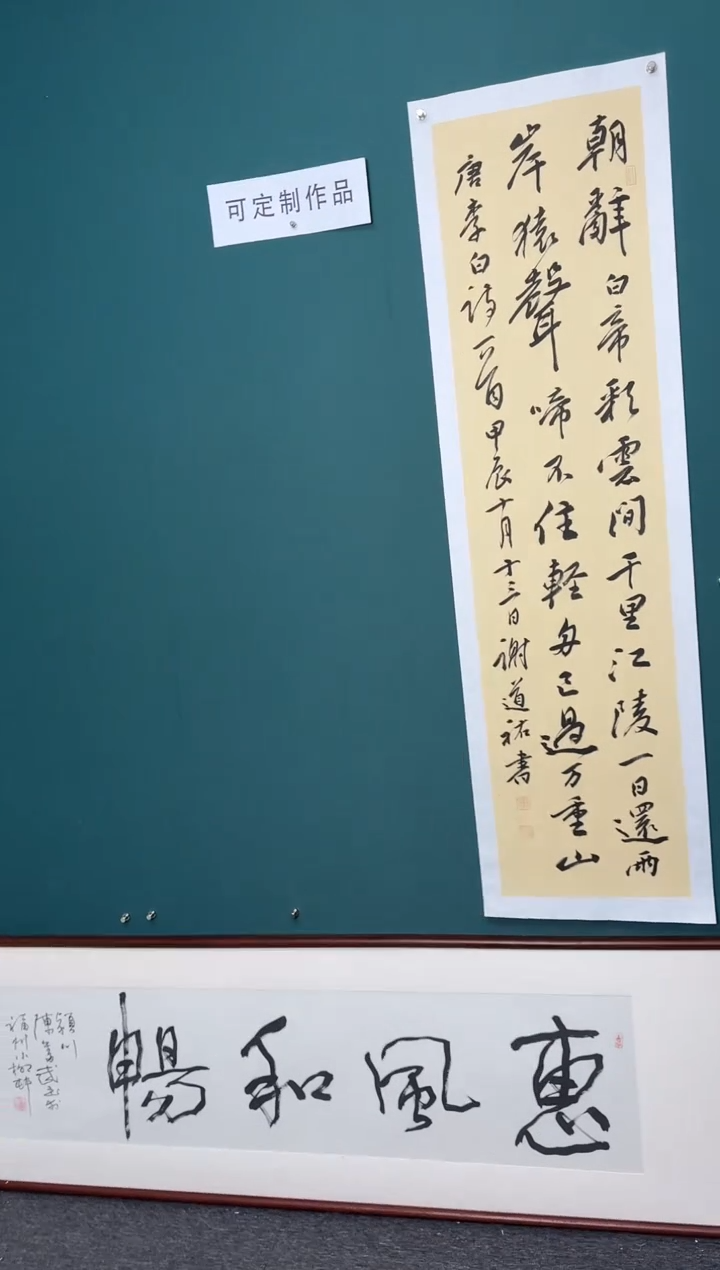 可定制作品
朝辭白帝彩雲間千里江陵一日還兩
岸猿聲啼不住輕舟已過万重山
唐李白詩一首甲辰十月十三日謝道祐書
惠風和暢